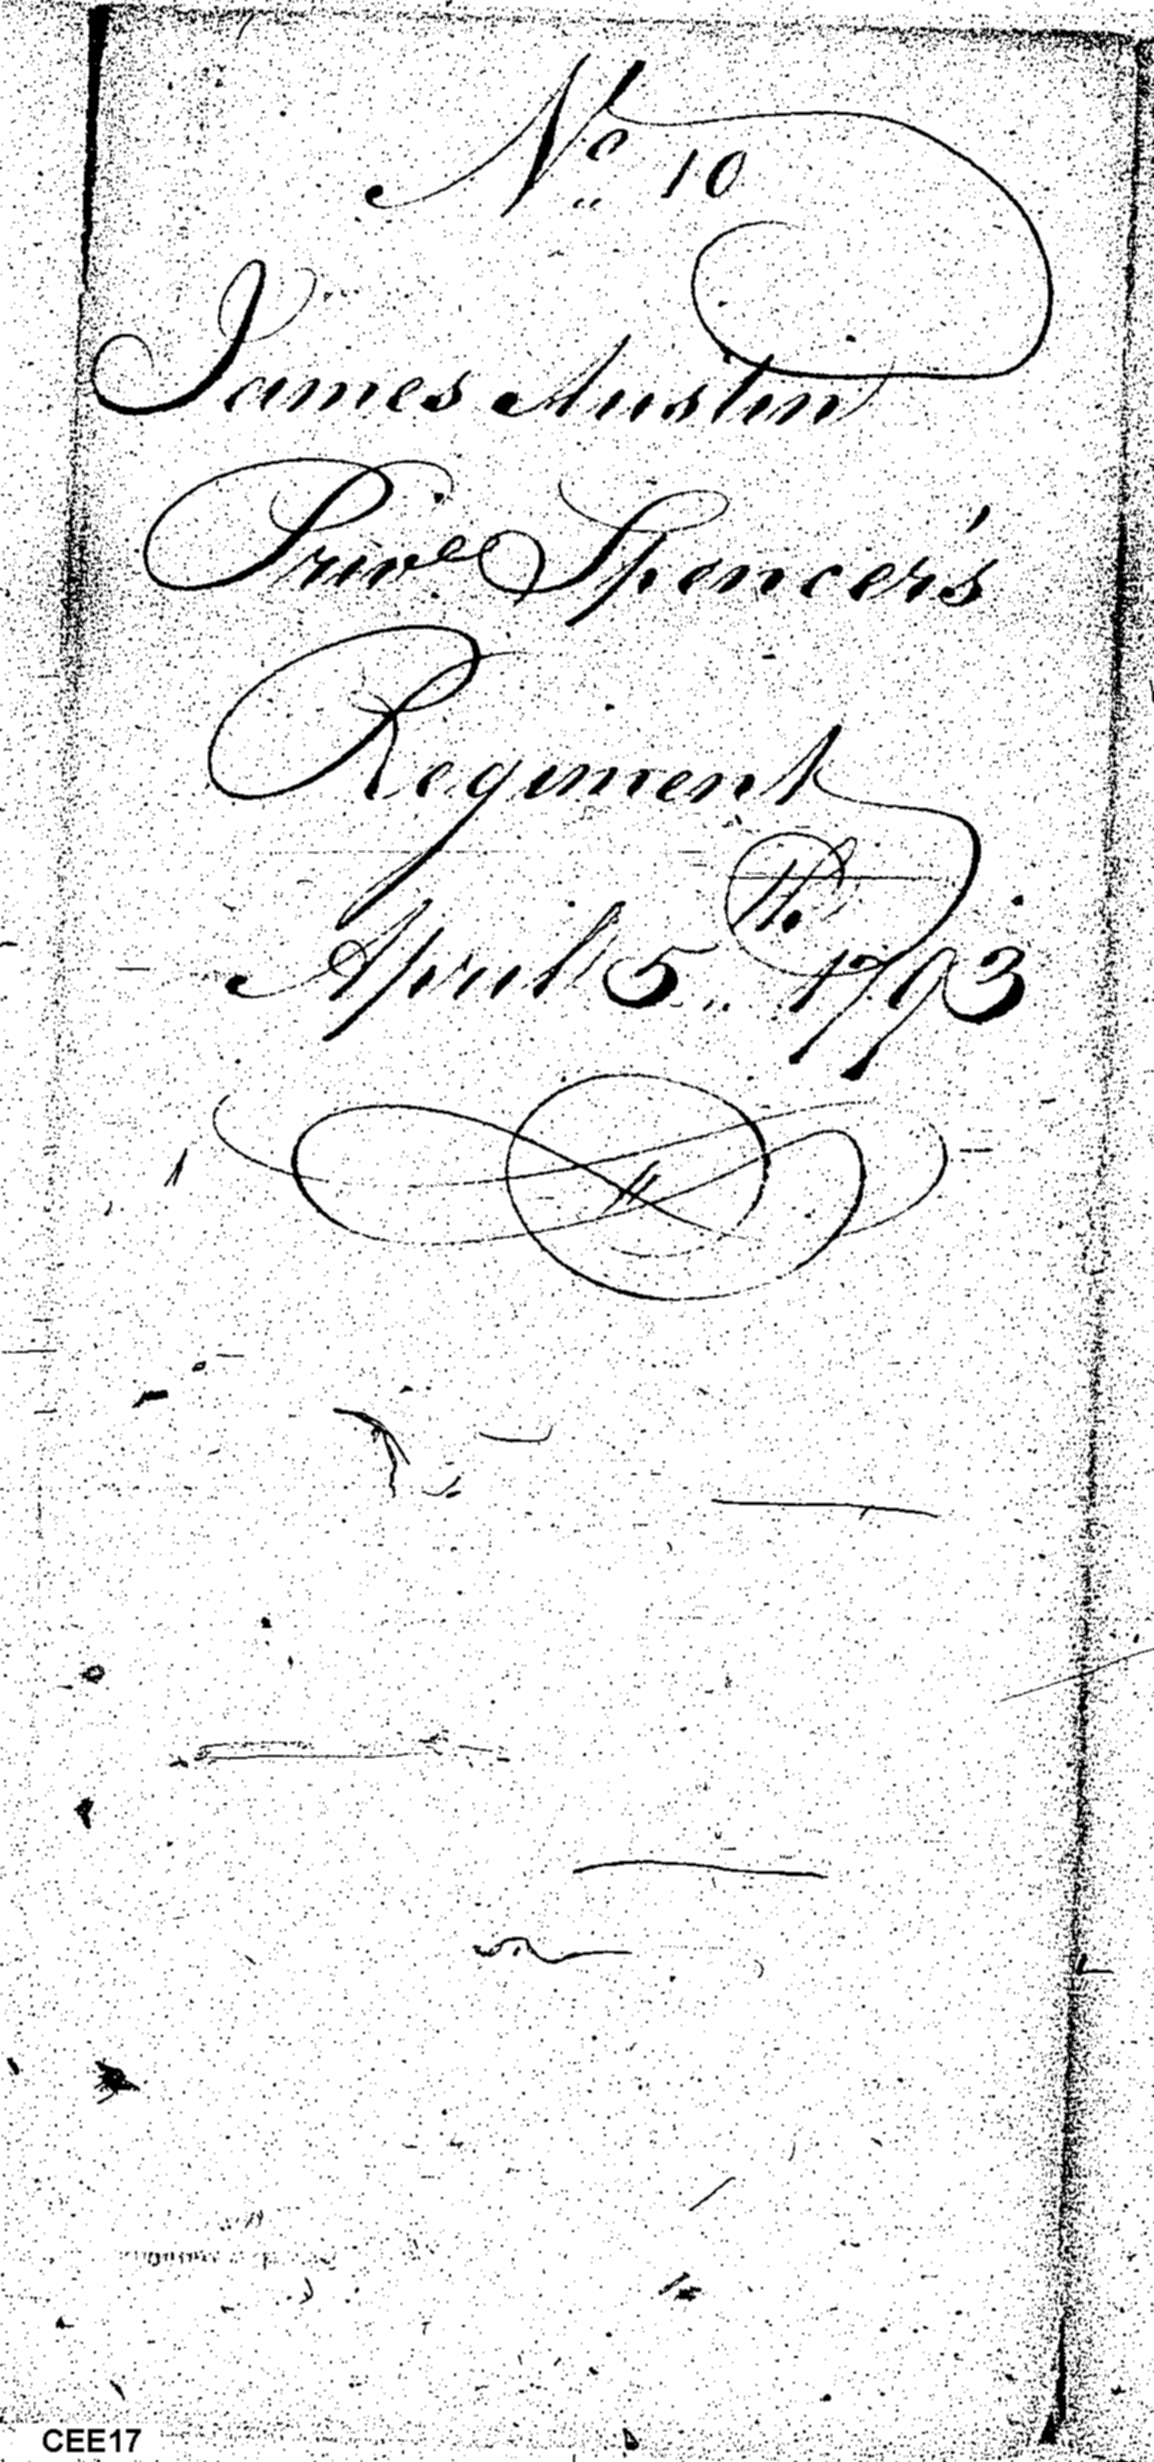 No 10
James Austin
Privee Spencer's
Regiment
April 5th 1793
CEE17